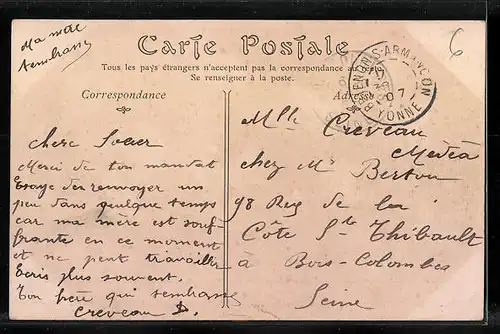 Ma mère
t'embrasse
6
Carte Postale
Tous les pays étrangers n'acceptent pas la correspondance au
Se renseigner à la poste.
Correspondance
Adresse
BRIENON-S-ARMANÇON
07
YONNE
Chere Soeur
Merci de ton mandat
Essaye d'en renvoyer un
peu dans quelque temps
car ma mère est souf
frante en ce moment
et ne peut travailler
Ecris plus souvent.
Ton frère qui t'embrasse
Creveau D.
Mlle Creveau
Medéa
chez Mr Berton
98 Rue de la
Côte St Thibault
à Bois-Colombes
Seine